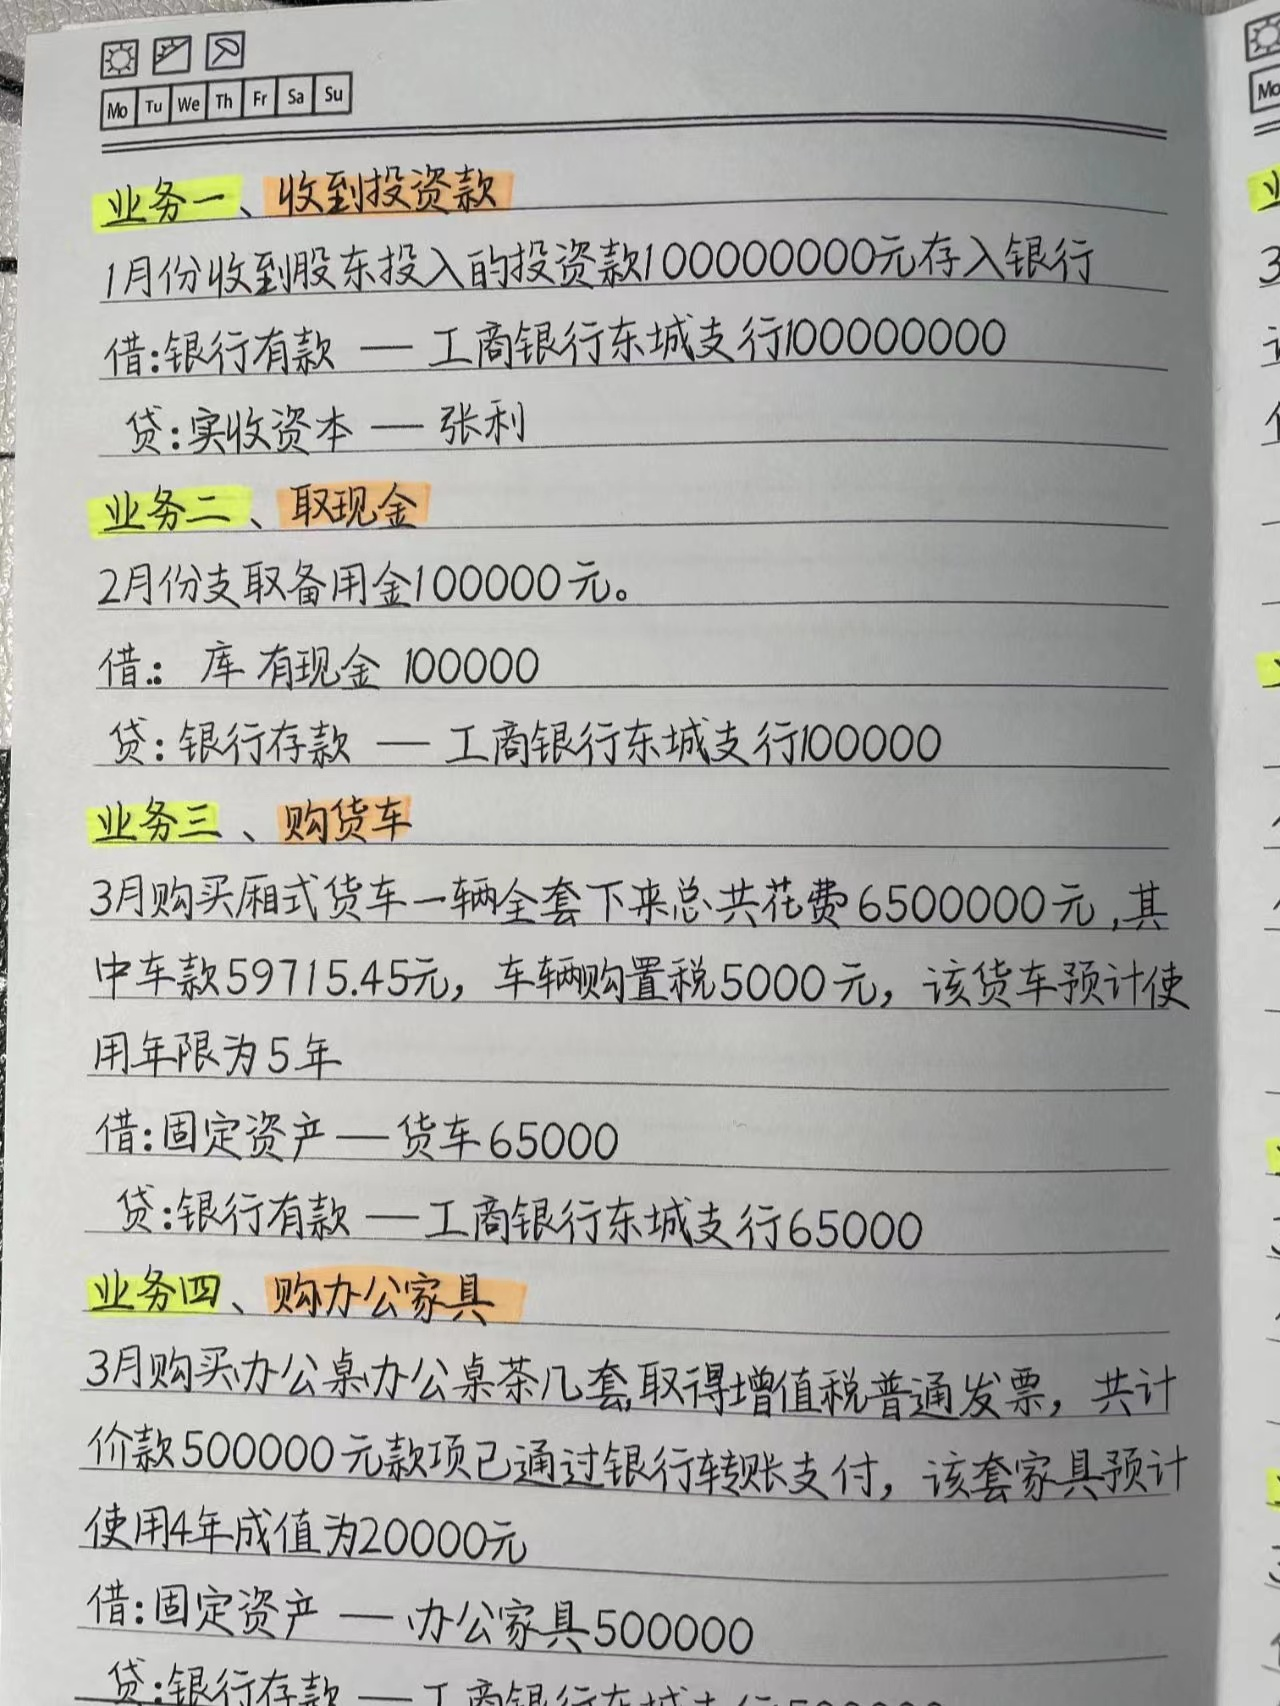 Mo Tu We Th Fr Sa Su
业务一、收到投资款
1月份收到股东投入的投资款100000000元存入银行
借:银行有款 — 工商银行东城支行100000000
贷:实收资本 — 张利
业务二、取现金
2月份支取备用金100000元。
借:: 库有现金 100000
贷:银行存款 — 工商银行东城支行100000
业务三、购货车
3月购买厢式货车一辆全套下来总共花费6500000元,其
中车款59715.45元,车辆购置税5000元,该货车预计使
用年限为5年
借:固定资产—货车65000
贷:银行有款 — 工商银行东城支行65000
业务四、购办公家具
3月购买办公桌办公桌茶几套,取得增值税普通发票,共计
价款500000元款项已通过银行转账支付,该套家具预计
使用4年成值为20000元
借:固定资产 — 办公家具500000
贷:银行存款 — 工商银行东城支行500000